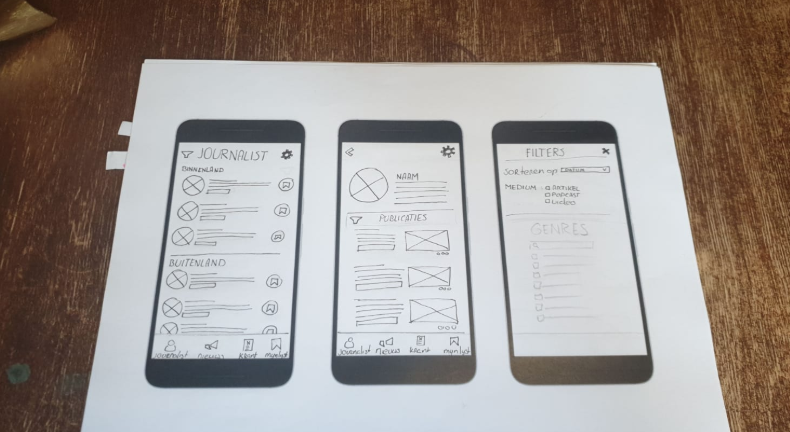 JOURNALIST
BINNENLAND
BUITENLAND
Journalist nieuws krant mijnlijst
NAAM
PUBLICATIES
Journalist nieuws krant mijnlijst
FILTERS
Sorteren op DATUM
MEDIUM ARTIKEL
PODCAST
Video
GENRES